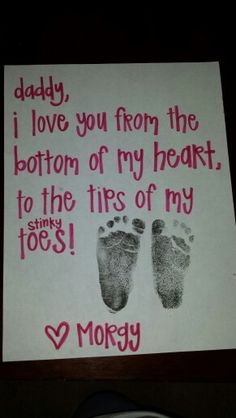 daddy,
i love you from the
bottom of my heart,
to the tips of my
stinky
toes!
♡ Morgy